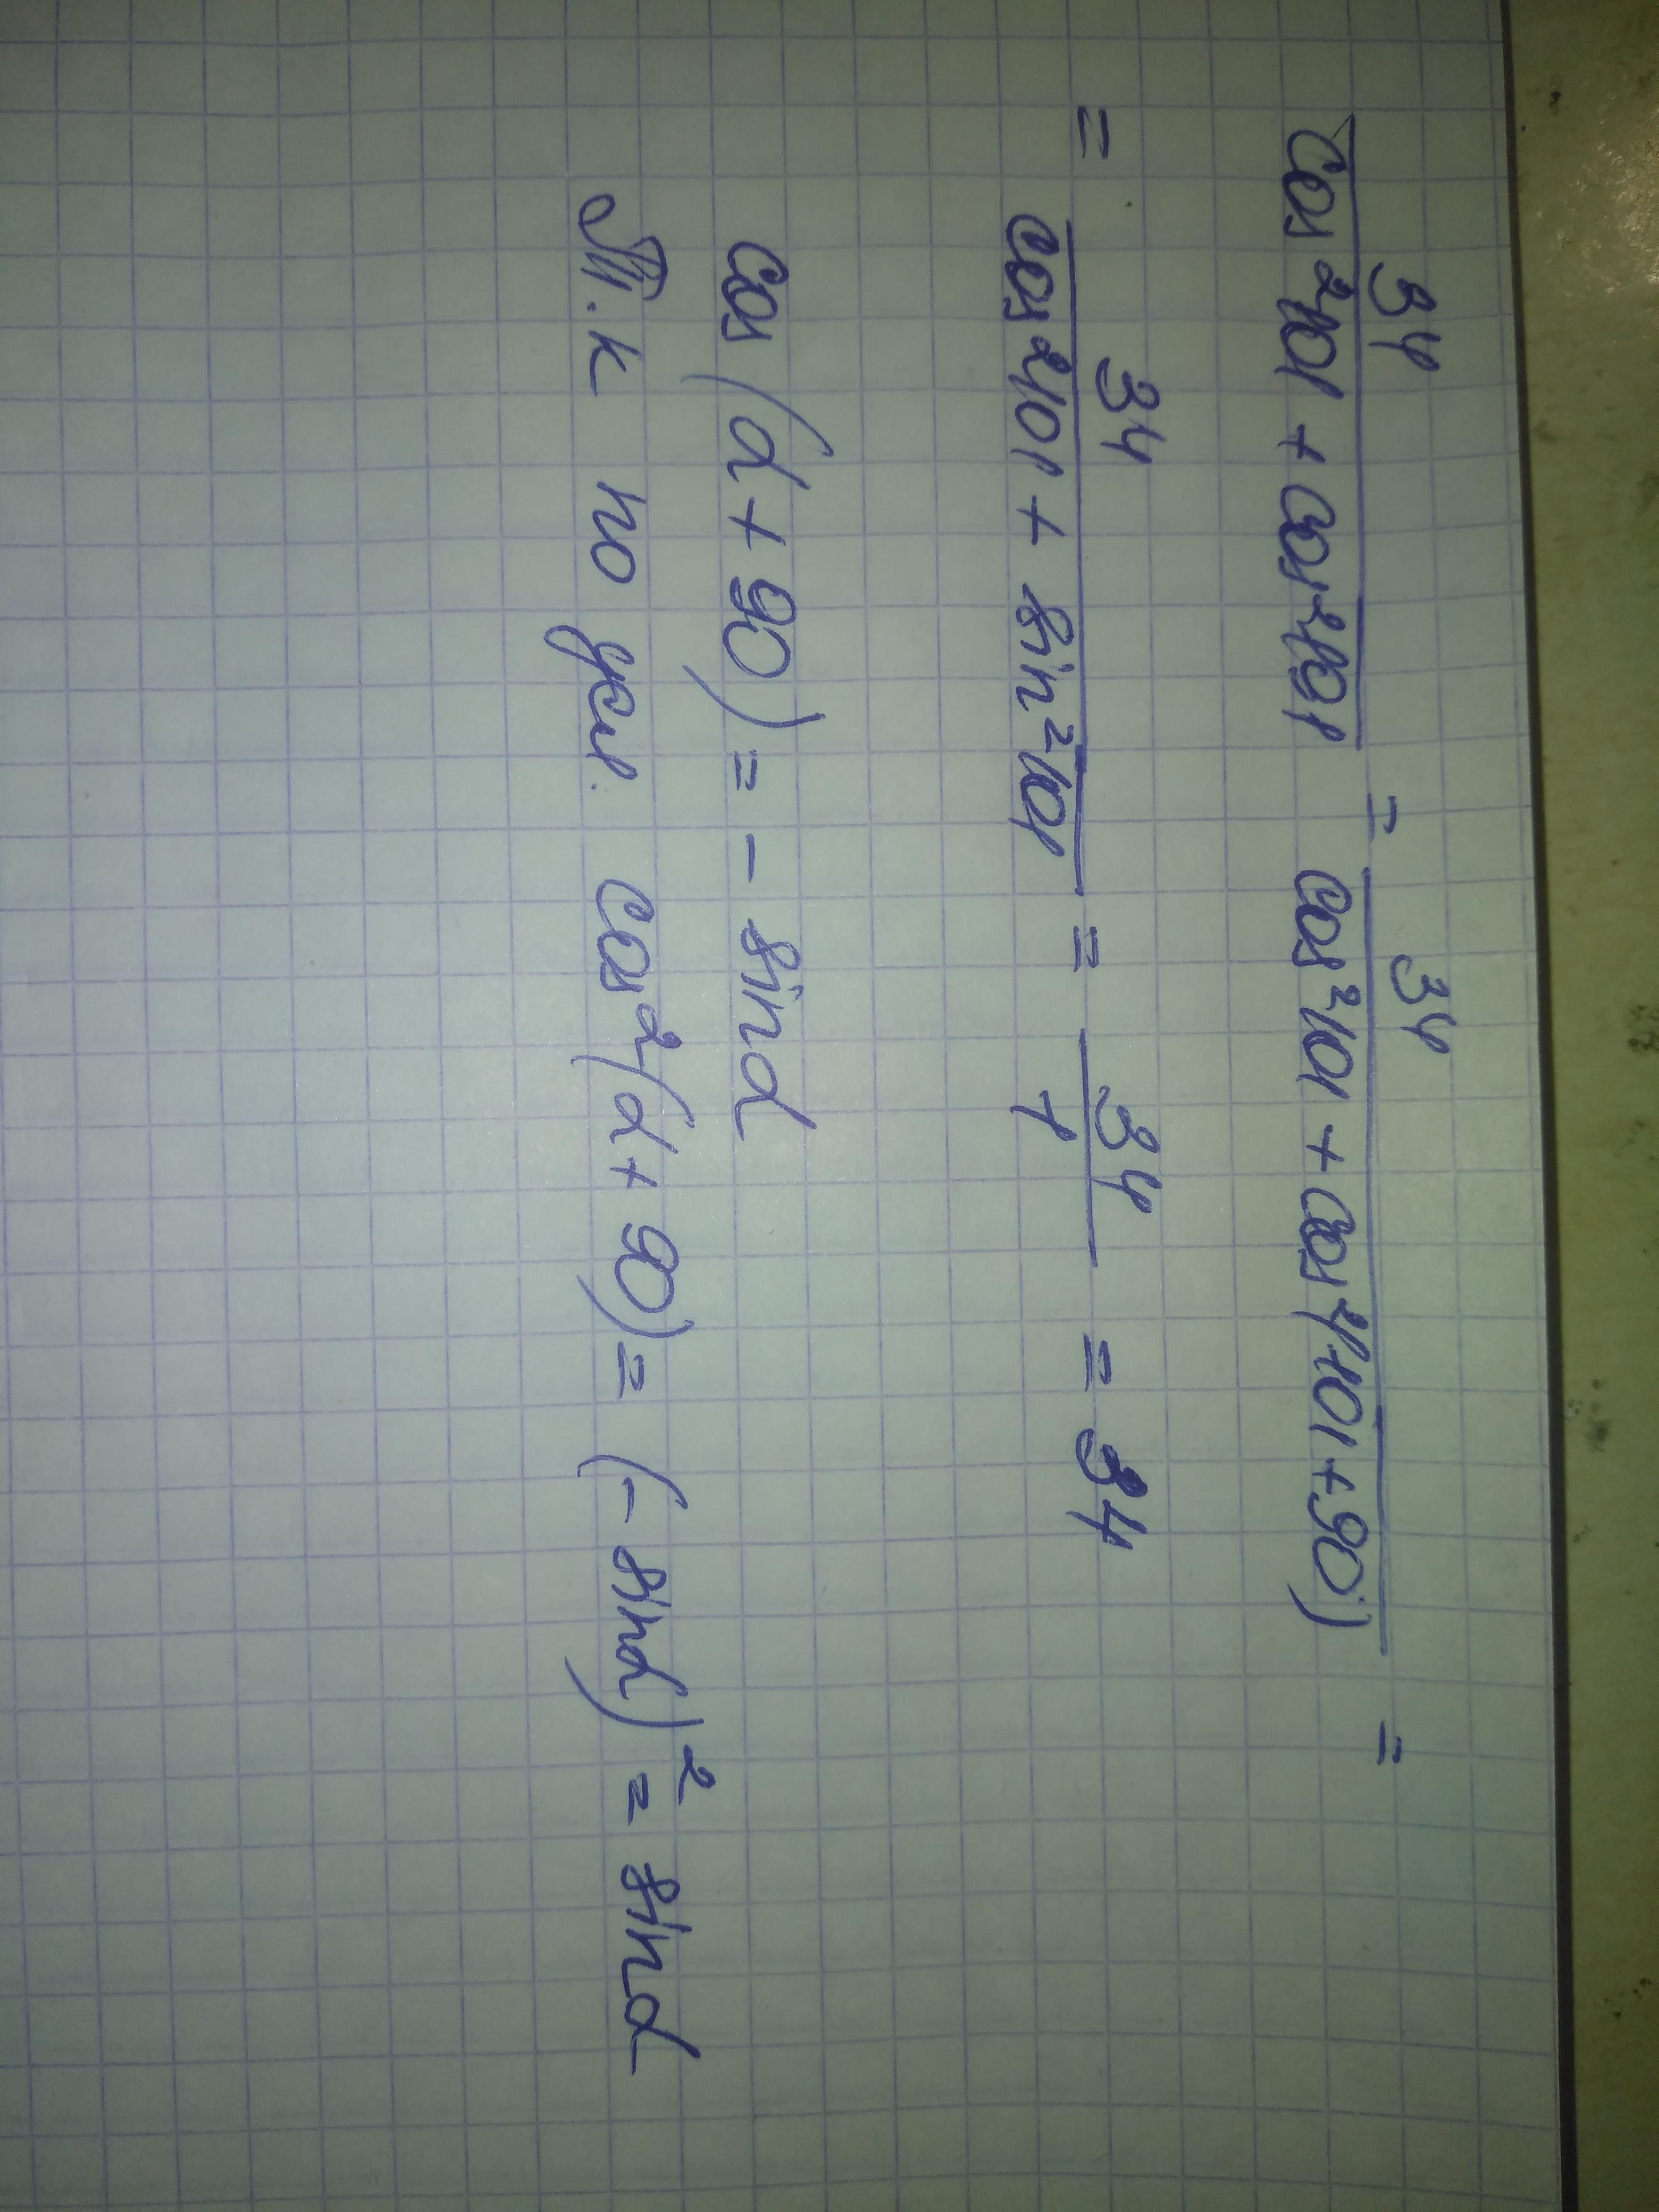 34 / cos²101 + cos²191 = 34 / cos²101 + cos²(101+90) =
= 34 / cos²101 + sin²101 = 34 / 1 = 34
cos(α+90) = - sinα
Т.к по усл. cos²(α+90) = (- sinα)² = sinα